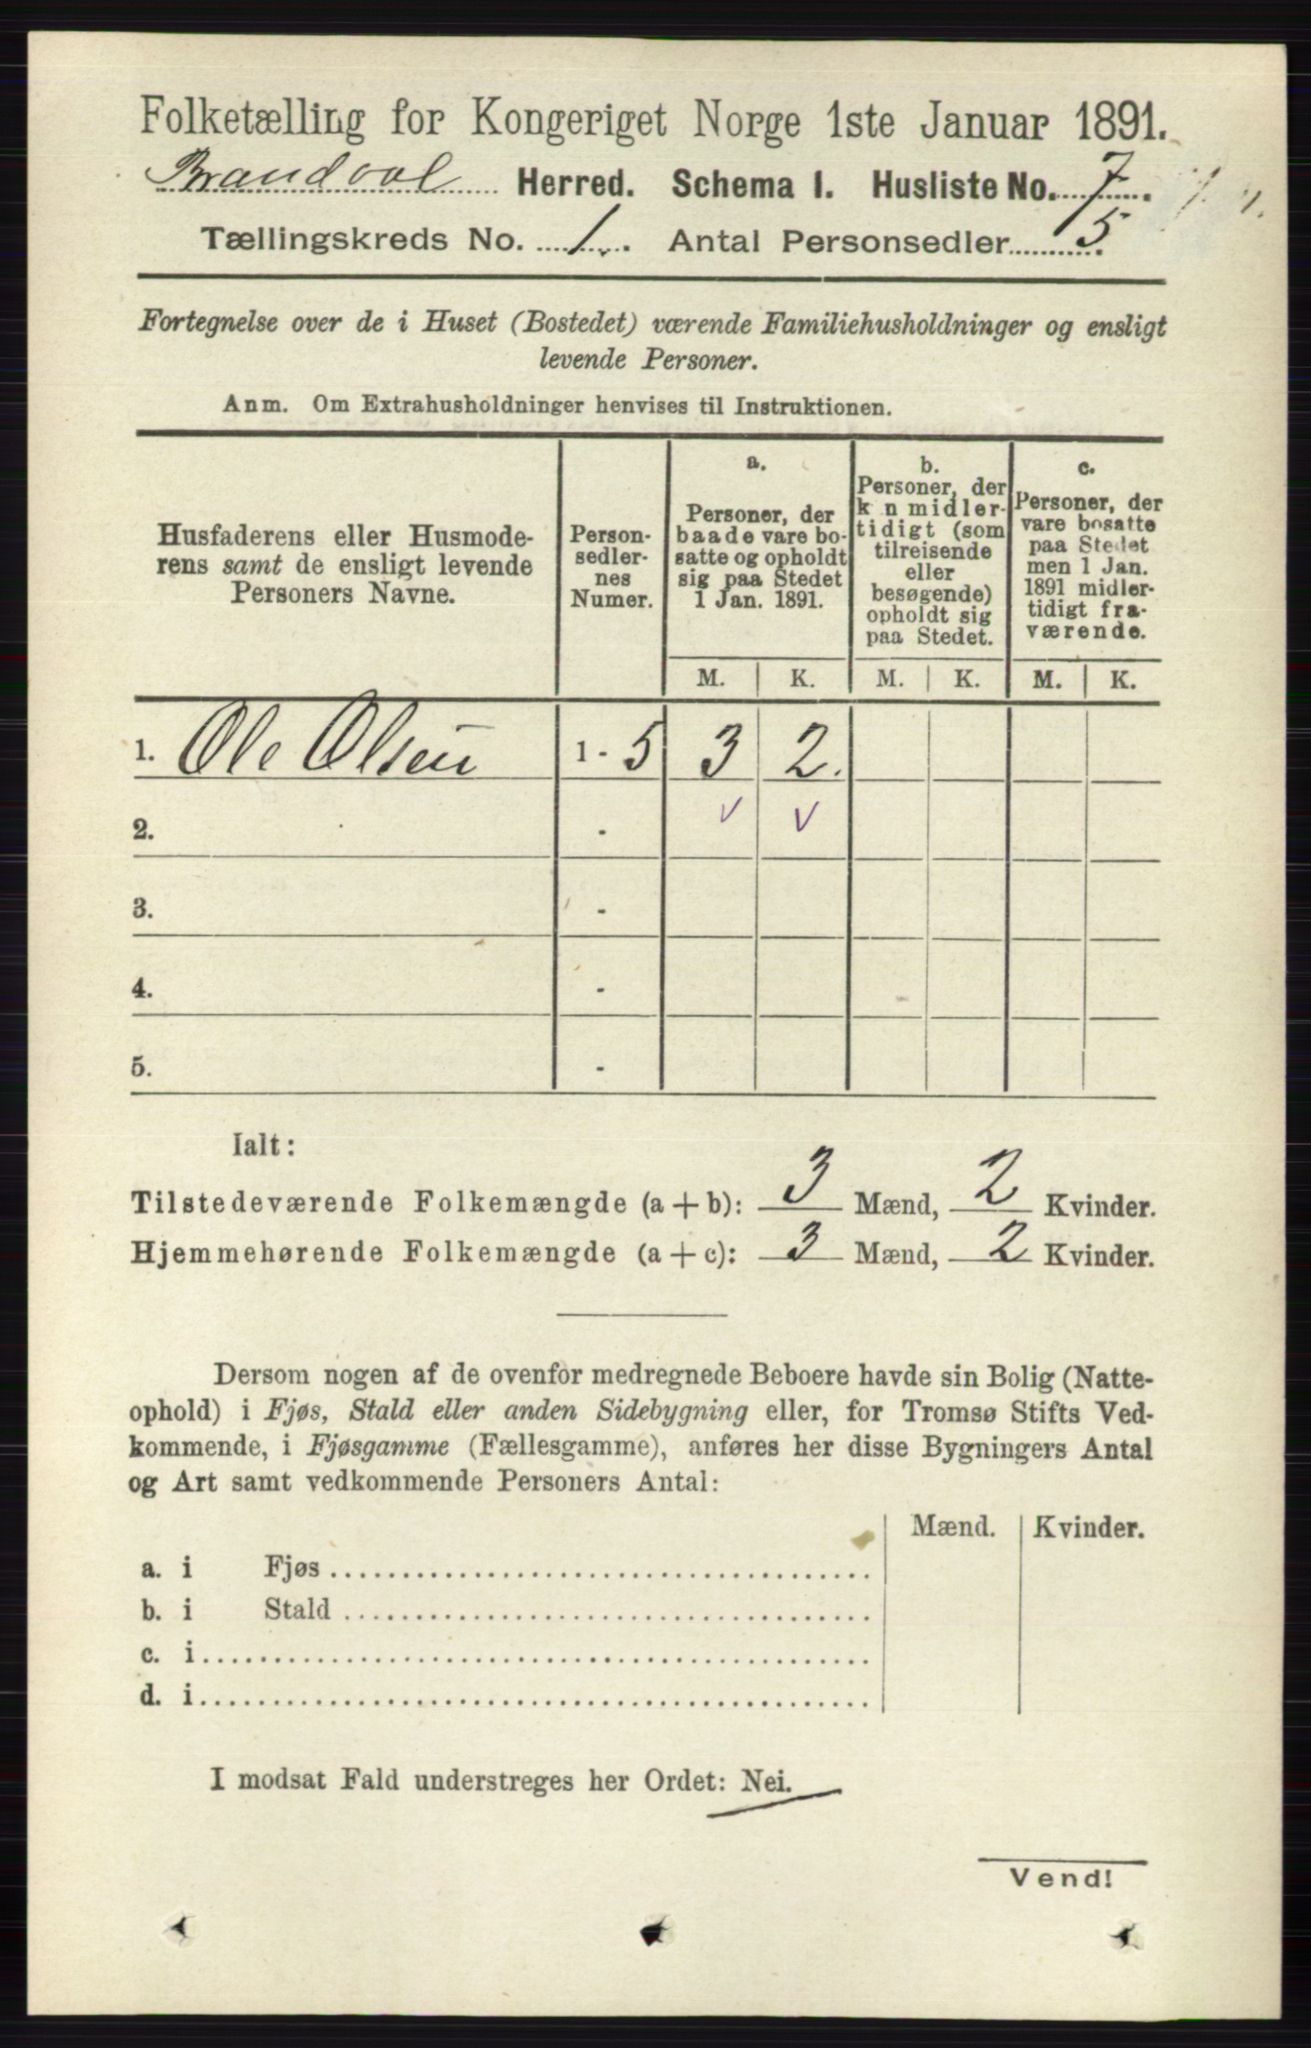 Folketælling for Kongeriget Norge 1ste Januar 1891.
Brandval Herred. Schema 1. Husliste No. 7.
Tællingskreds No. 1. Antal Personsedler 5.
Fortegnelse over de i Huset (Bostedet) værende Familiehusholdninger og ensligt
levende Personer.
Anm. Om Extrahusholdninger henvises til Instruktionen.
Husfaderens eller Husmode-
rens samt de ensligt levende
Personers Navne.
Person-
sedler-
nes
Numer.
a.
Personer, der
baade vare bo-
satte og opholdt
sig paa Stedet
1 Jan. 1891.
b.
Personer, der
k n midler-
tidigt (som
tilreisende
eller
besøgende)
opholdt sig
paa Stedet.
c.
Personer, der
vare bosatte
paa Stedet
men 1 Jan.
1891 midler-
tidigt fra-
værende.
M. K. M. K. M. K.
1. Ole Olsen 1 - 5 3 2.
2. -
3. -
4. -
5. -
Ialt:
Tilstedeværende Folkemængde (a + b): 3 Mænd, 2 Kvinder.
Hjemmehørende Folkemængde (a + c): 3 Mænd, 2 Kvinder.
Dersom nogen af de ovenfor medregnede Beboere havde sin Bolig (Natte-
ophold) i Fjøs, Stald eller anden Sidebygning eller, for Tromsø Stifts Ved-
kommende, i Fjøsgamme (Fællesgamme), anføres her disse Bygningers Antal
og Art samt vedkommende Personers Antal:
Mænd. Kvinder.
a. i Fjøs
b. i Stald
c. i
d. i
I modsat Fald understreges her Ordet: Nei.
Vend!